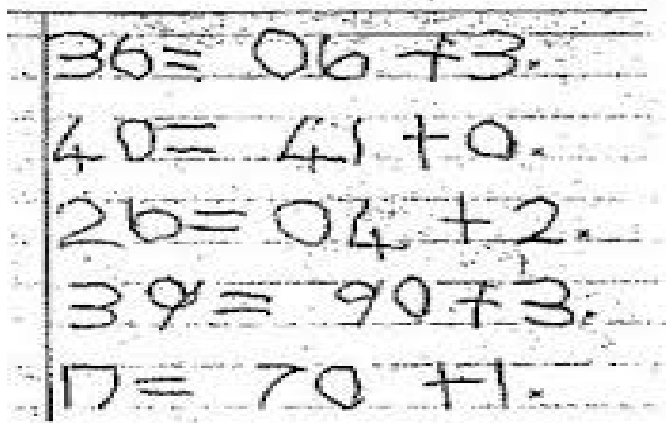 36= 06+3.
40= 41+0.
26= 04+2.
39= 90+3.
17= 70+1.